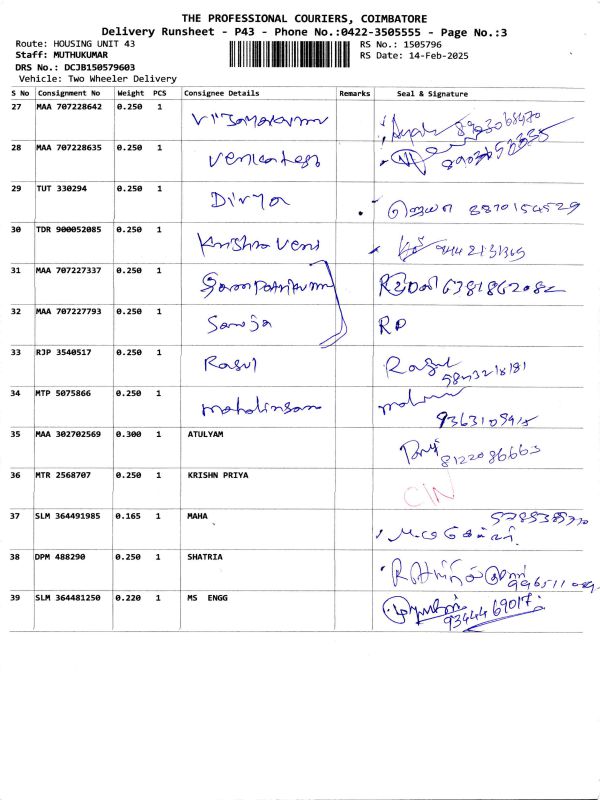 THE PROFESSIONAL COURIERS, COIMBATORE
Delivery Runsheet - P43 - Phone No.:0422-3505555 - Page No.:3
Route: HOUSING UNIT 43 RS No.: 1505796
Staff: MUTHUKUMAR RS Date: 14-Feb-2025
DRS No.: DCJB150579603
Vehicle: Two Wheeler Delivery
S No Consignment No Weight PCS Consignee Details Remarks Seal & Signature
27 MAA 707228642 0.250 1
28 MAA 707228635 0.250 1 Venkatesh
29 TUT 330294 0.250 1 Divya 8870154529
30 TDR 900052085 0.250 1 Krishna Veni 9442131365
31 MAA 707227337 0.250 1 6381862082
32 MAA 707227793 0.250 1 Saroja RD
33 RJP 3540517 0.250 1 Rasul Rasul
9843218181
34 MTP 5075866 0.250 1 mahalingam
9363109415
35 MAA 302702569 0.300 1 ATULYAM
8122086663
36 MTR 2568707 0.250 1 KRISHN PRIYA CIN
37 SLM 364491985 0.165 1 MAHA
38 DPM 488290 0.250 1 SHATRIA
39 SLM 364481250 0.220 1 MS ENGG
9344469017